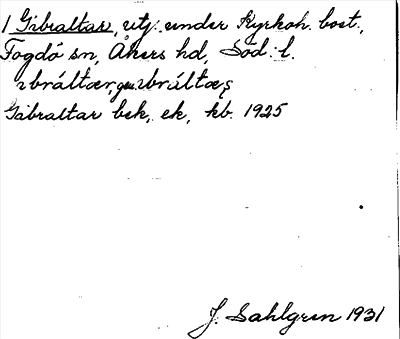 1 Gibraltar, utj. under Kyrkoh. bost.,
Fogdö sn, Åkers hd, Söd. l.
Gibraltar bek, ek, kb. 1925
J. Sahlgren 1931